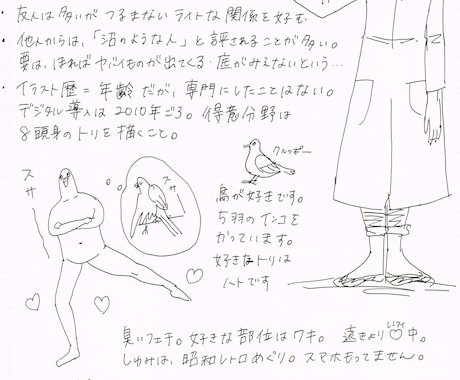 ・友人は多いが つるまないライトな関係を好む
・他人からは、「沼のような人」と評されることが多い。
要は、ほればヤバイものが出てくる・底がみえないという…
・イラスト歴=年齢だが、専門にしたことはない。
デジタル導入は2010年ごろ。得意分野は
8頭身のトリを描くこと。
クルッポー
スサ
スサ
鳥が好きです。
5羽のインコを
かっています。
好きなトリは
ハトです
臭いフェチ。好きな部位はワキ。遠きより♡中。
しゅみは、昭和レトロめぐり。スマホもってません。